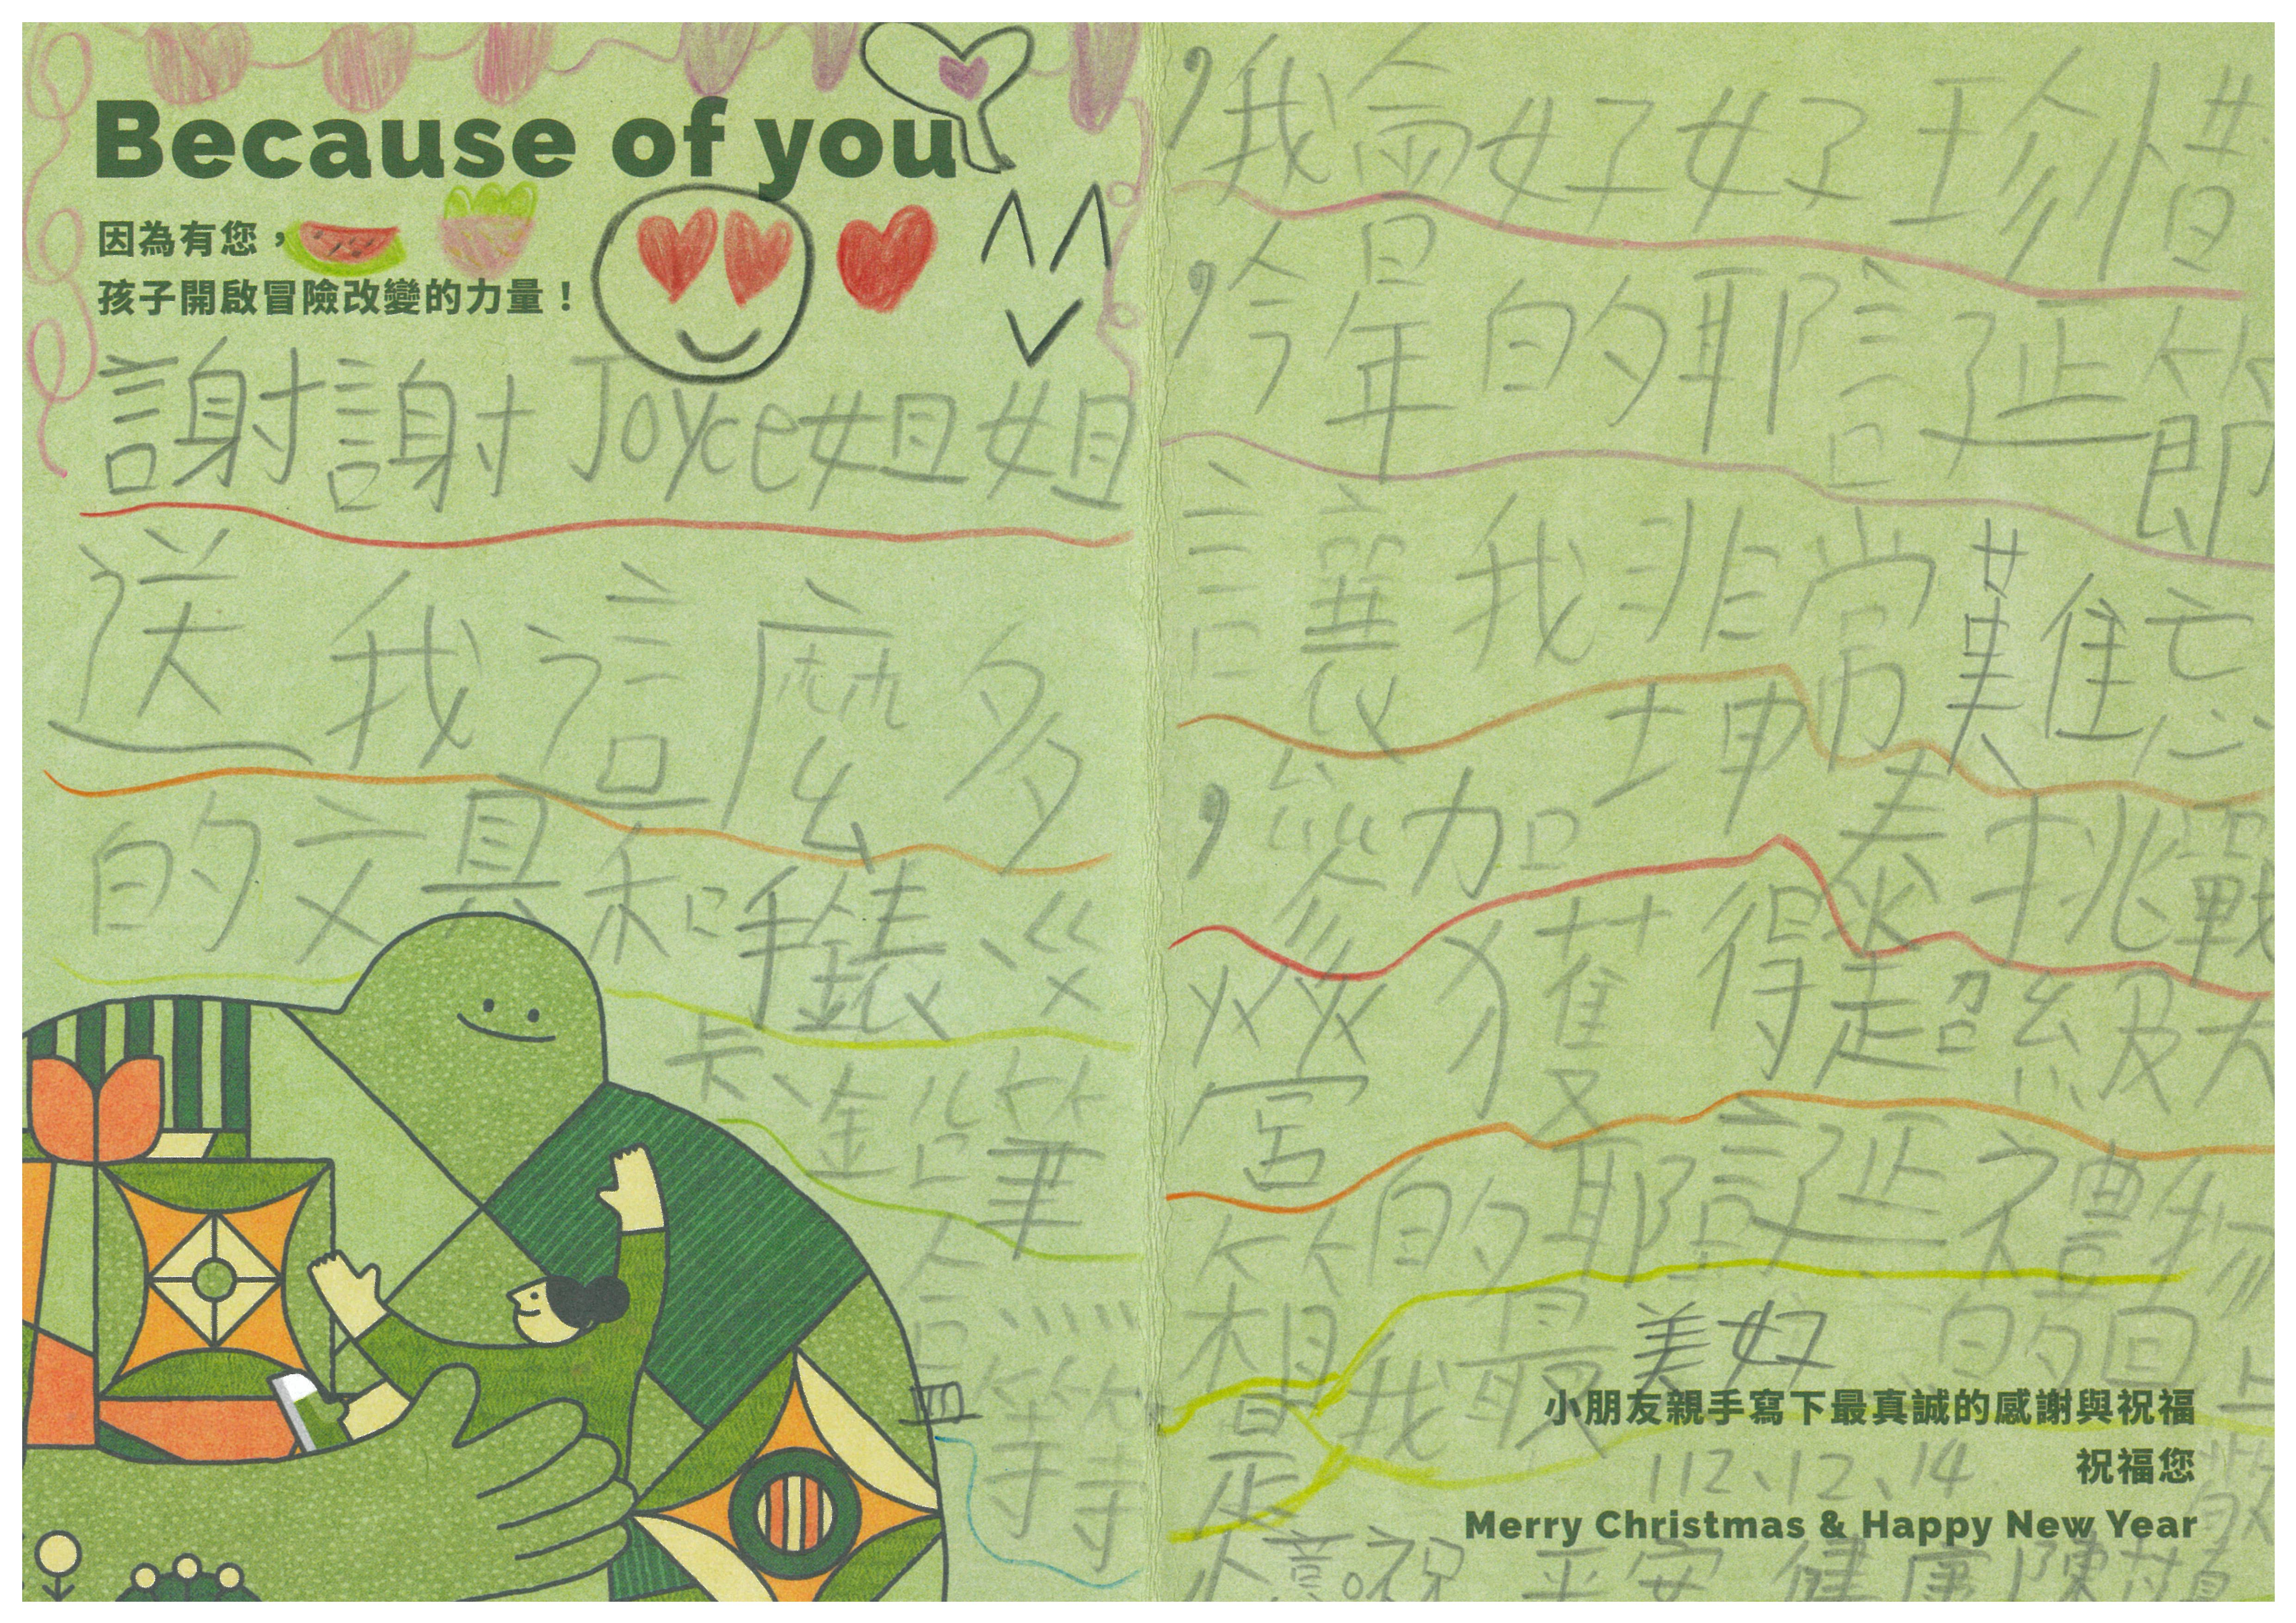 Because of you
因為有您，
孩子開啟冒險改變的力量！
謝謝Joyce姐姐
送我這麼多
的文具和手錶、巛
卡、金鉛筆
盒 等等
，我會好好珍惜
，今年的耶誕節
讓我非常難忘
，參加坤泰挑戰
獲得超級大
的耶誕禮物
箱是我最美好的回
小朋友親手寫下最真誠的感謝與祝福
112、12、14
祝福您
Merry Christmas & Happy New Year
意。祝 平安 健康 陳